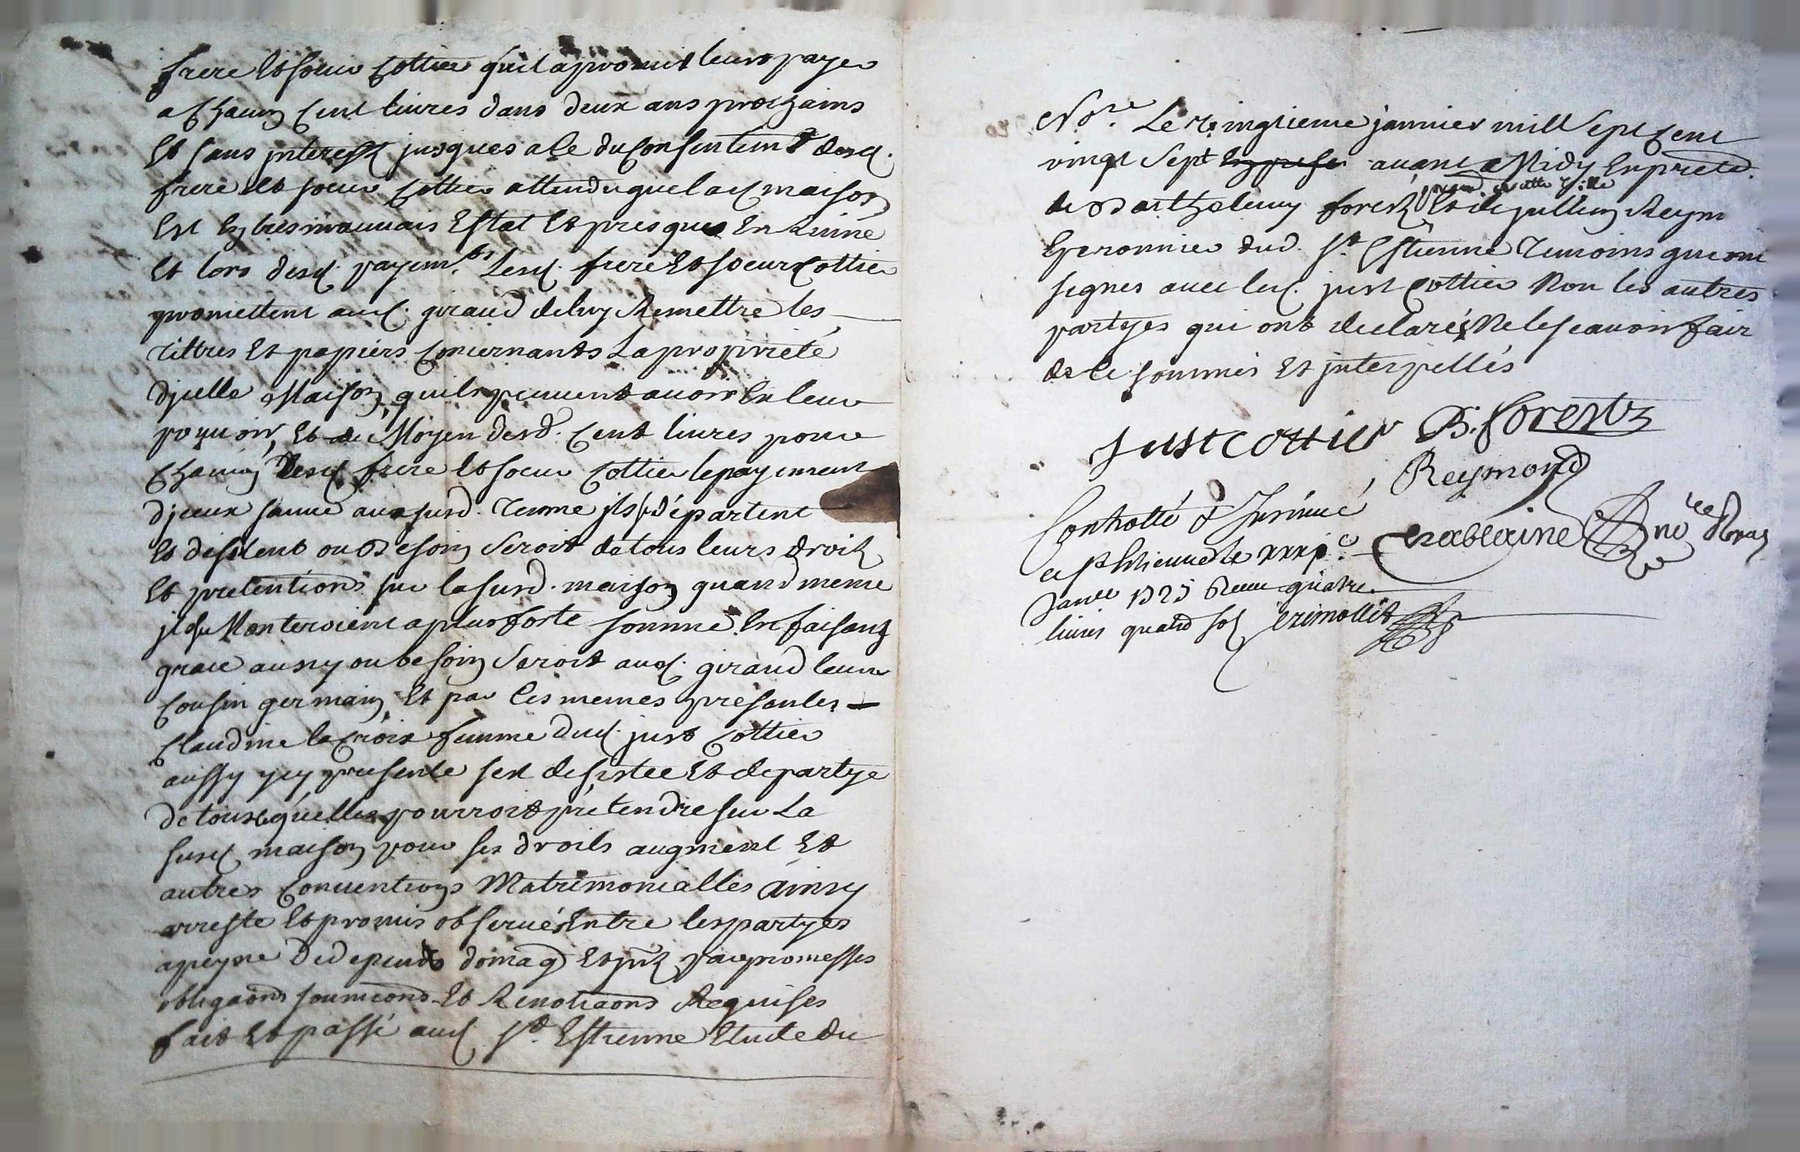 frere et soeur Cottier qu'il a promis leurs payer
a chacun cent livres dans deux ans prochains
et sans interest jusques a ce du consentemt desd.
frere et soeur Cottier attendu que lad maison
est en tres mauvais estat et presques en ruine
et lors desd. payemts. Lesd. frere et soeur Cottier
promettent aud. giraud de luy remettre les
tittres et papiers concernants la proprieté
d'jcelle Maison qu'ils peuvent avoir en leur
pouvoir, et au Moyen desd. cent livres pour
chacun desd frere et soeur Cottier le payement
d'jceux fauve au susd. terme jls se départent
et desistent ou besoin seroit de tous leurs droits
et pretentions sur la susd. maison quand meme
jls se Monteroient a plus forte somme en faisant
grace aussy ou besoin seroit aud. giraud leur
cousin germain, et par ces memes presentes
Claudine la Croix femme dud. just Cottier
aussy jcy presente s'est desistee et departye
de tout ce qu'elle pourroit prétendre sur La
susd. maison pour ses droits augment et
autres conventions Matrimonialles ainsy
arresté et promis observer entre les partyes
a peyne de depends domag et jnts par promesses
obligaons soumions et Renonaons Requises
fait et passé aud. St. Estienne Etude du
Nore. Le vingtieme janvier mill sept cent
vingt sept avant Midy en prece.
de Barthelemy forest de cette ville et de jullien Reymond
Eperonnier dud. St. Estienne temoins qui ont
signes avec led. just Cottier Non les autres
partyes qui ont declarés Ne le scavoir fair
de ce sommés et interpellés
Just Cottier B. forest
Reymond
Controllé & Insinué
a St Etienne le xxxje
Janer 1727 Receu quatre
livres quatre sols